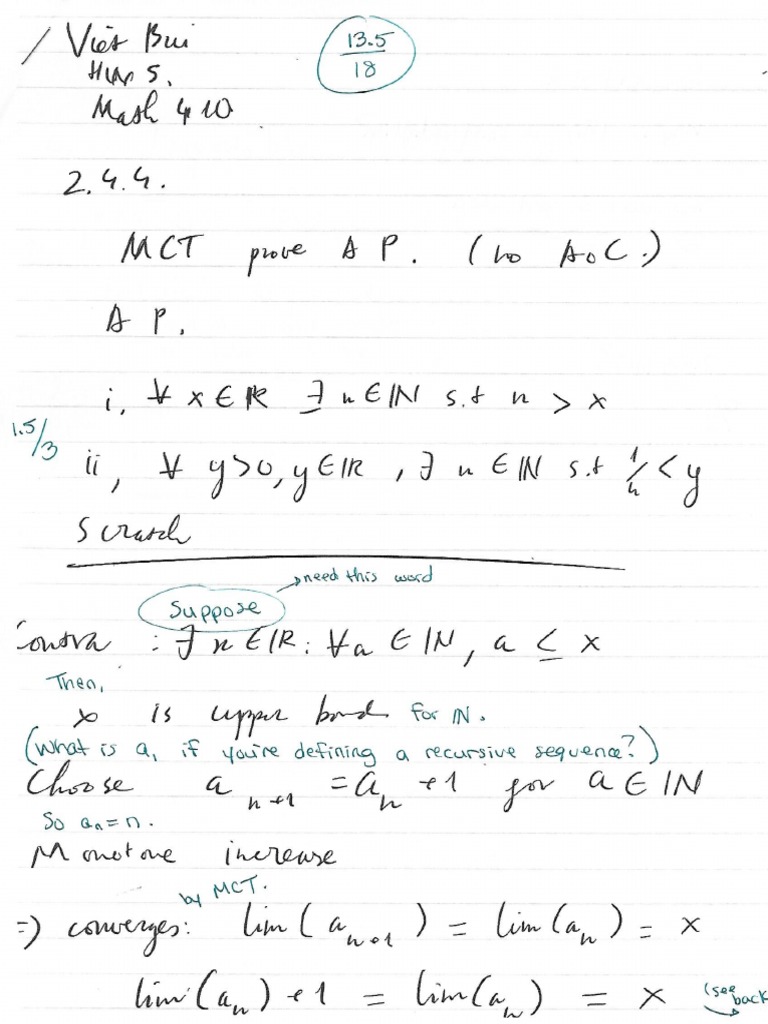 / Việt Bui
13.5
18
HW 5.
Math 410
2.4.4.
MCT prove A P. (no AoC.)
A P.
i, ∀ x ∈ ℝ ∃ n ∈ ℕ s.t n > x
1.5/3
ii, ∀ y>0, y ∈ ℝ, ∃ n ∈ ℕ s.t 1/n < y
Scratch
→ need this word
Suppose
Contra : ∃ x ∈ ℝ : ∀ a ∈ ℕ, a ≤ x
Then,
x is upper bound for ℕ.
(What is a₁ if you're defining a recursive sequence?)
Choose a_{n+1} = a_n + 1 for a ∈ ℕ
So a_n = n.
Monotone increase
by MCT.
=> converges: lim(a_{n+1}) = lim(a_n) = x
lim(a_n) + 1 = lim(a_n) = x (see back